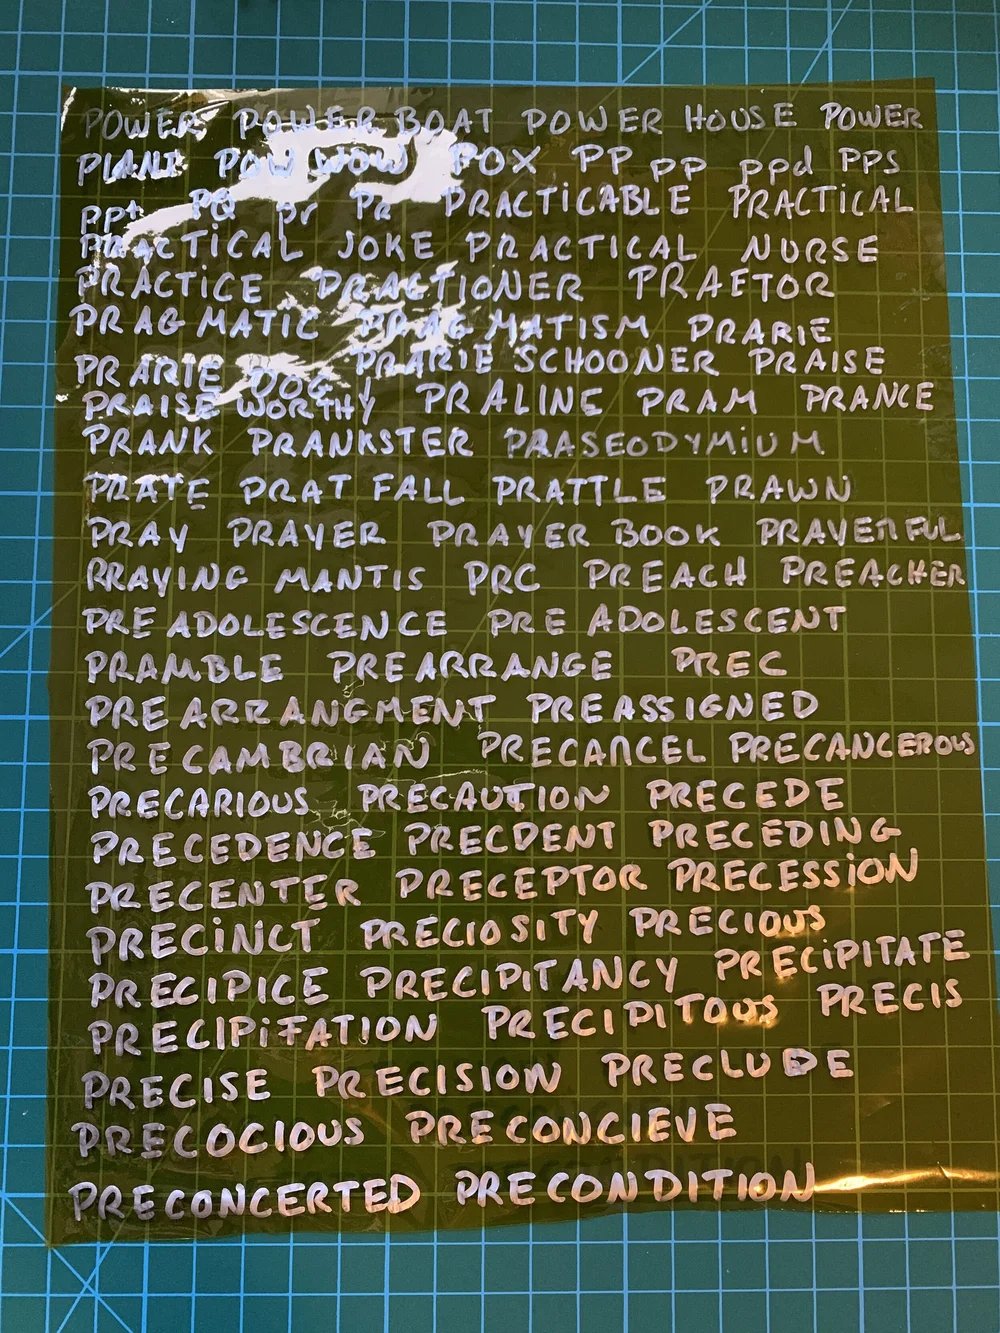 POWER POWER BOAT POWER HOUSE POWER
PLANT POW WOW POX PP pp ppd PPS
ppt PQ pr Pr PRACTiCABLE PRACTiCAL
PRACTiCAL JOKE PRACTICAL NURSE
PRACTiCE PRACTIONER PRAETOR
PRAGMATIC PRAGMATISM PRARIE
PRARIE DOG PRARIE SCHOONER PRAISE
PRAISE WORTHY PRALINE PRAM PRANCE
PRANK PRANKSTER PRASEODYMiUM
PRATE PRAT FALL PRATTLE PRAWN
PRAY PRAYER PRAYER BOOK PRAYERFUL
PRAYING MANTIS PRC PREACH PREACHER
PREADOLESCENCE PRE ADOLESCENT
PRAMBLE PREARRANGE PREC
PREARRANGMENT PREASSIGNED
PRECAMBRIAN PRECANCEL PRECANCEROUS
PRECARIOUS PRECAUTION PRECEDE
PRECEDENCE PRECDENT PRECEDING
PRECENTER PRECEPTOR PRECESSiON
PRECiNCT PRECIOSITY PRECIOUS
PRECIPICE PRECIPITANCY PRECiPITATE
PRECIPiTATION PRECIPITOUS PRECIS
PRECISE PRECISION PRECLUDE
PRECOCIOUS PRECONCIEVE
PRECONCERTED PRECONDITION